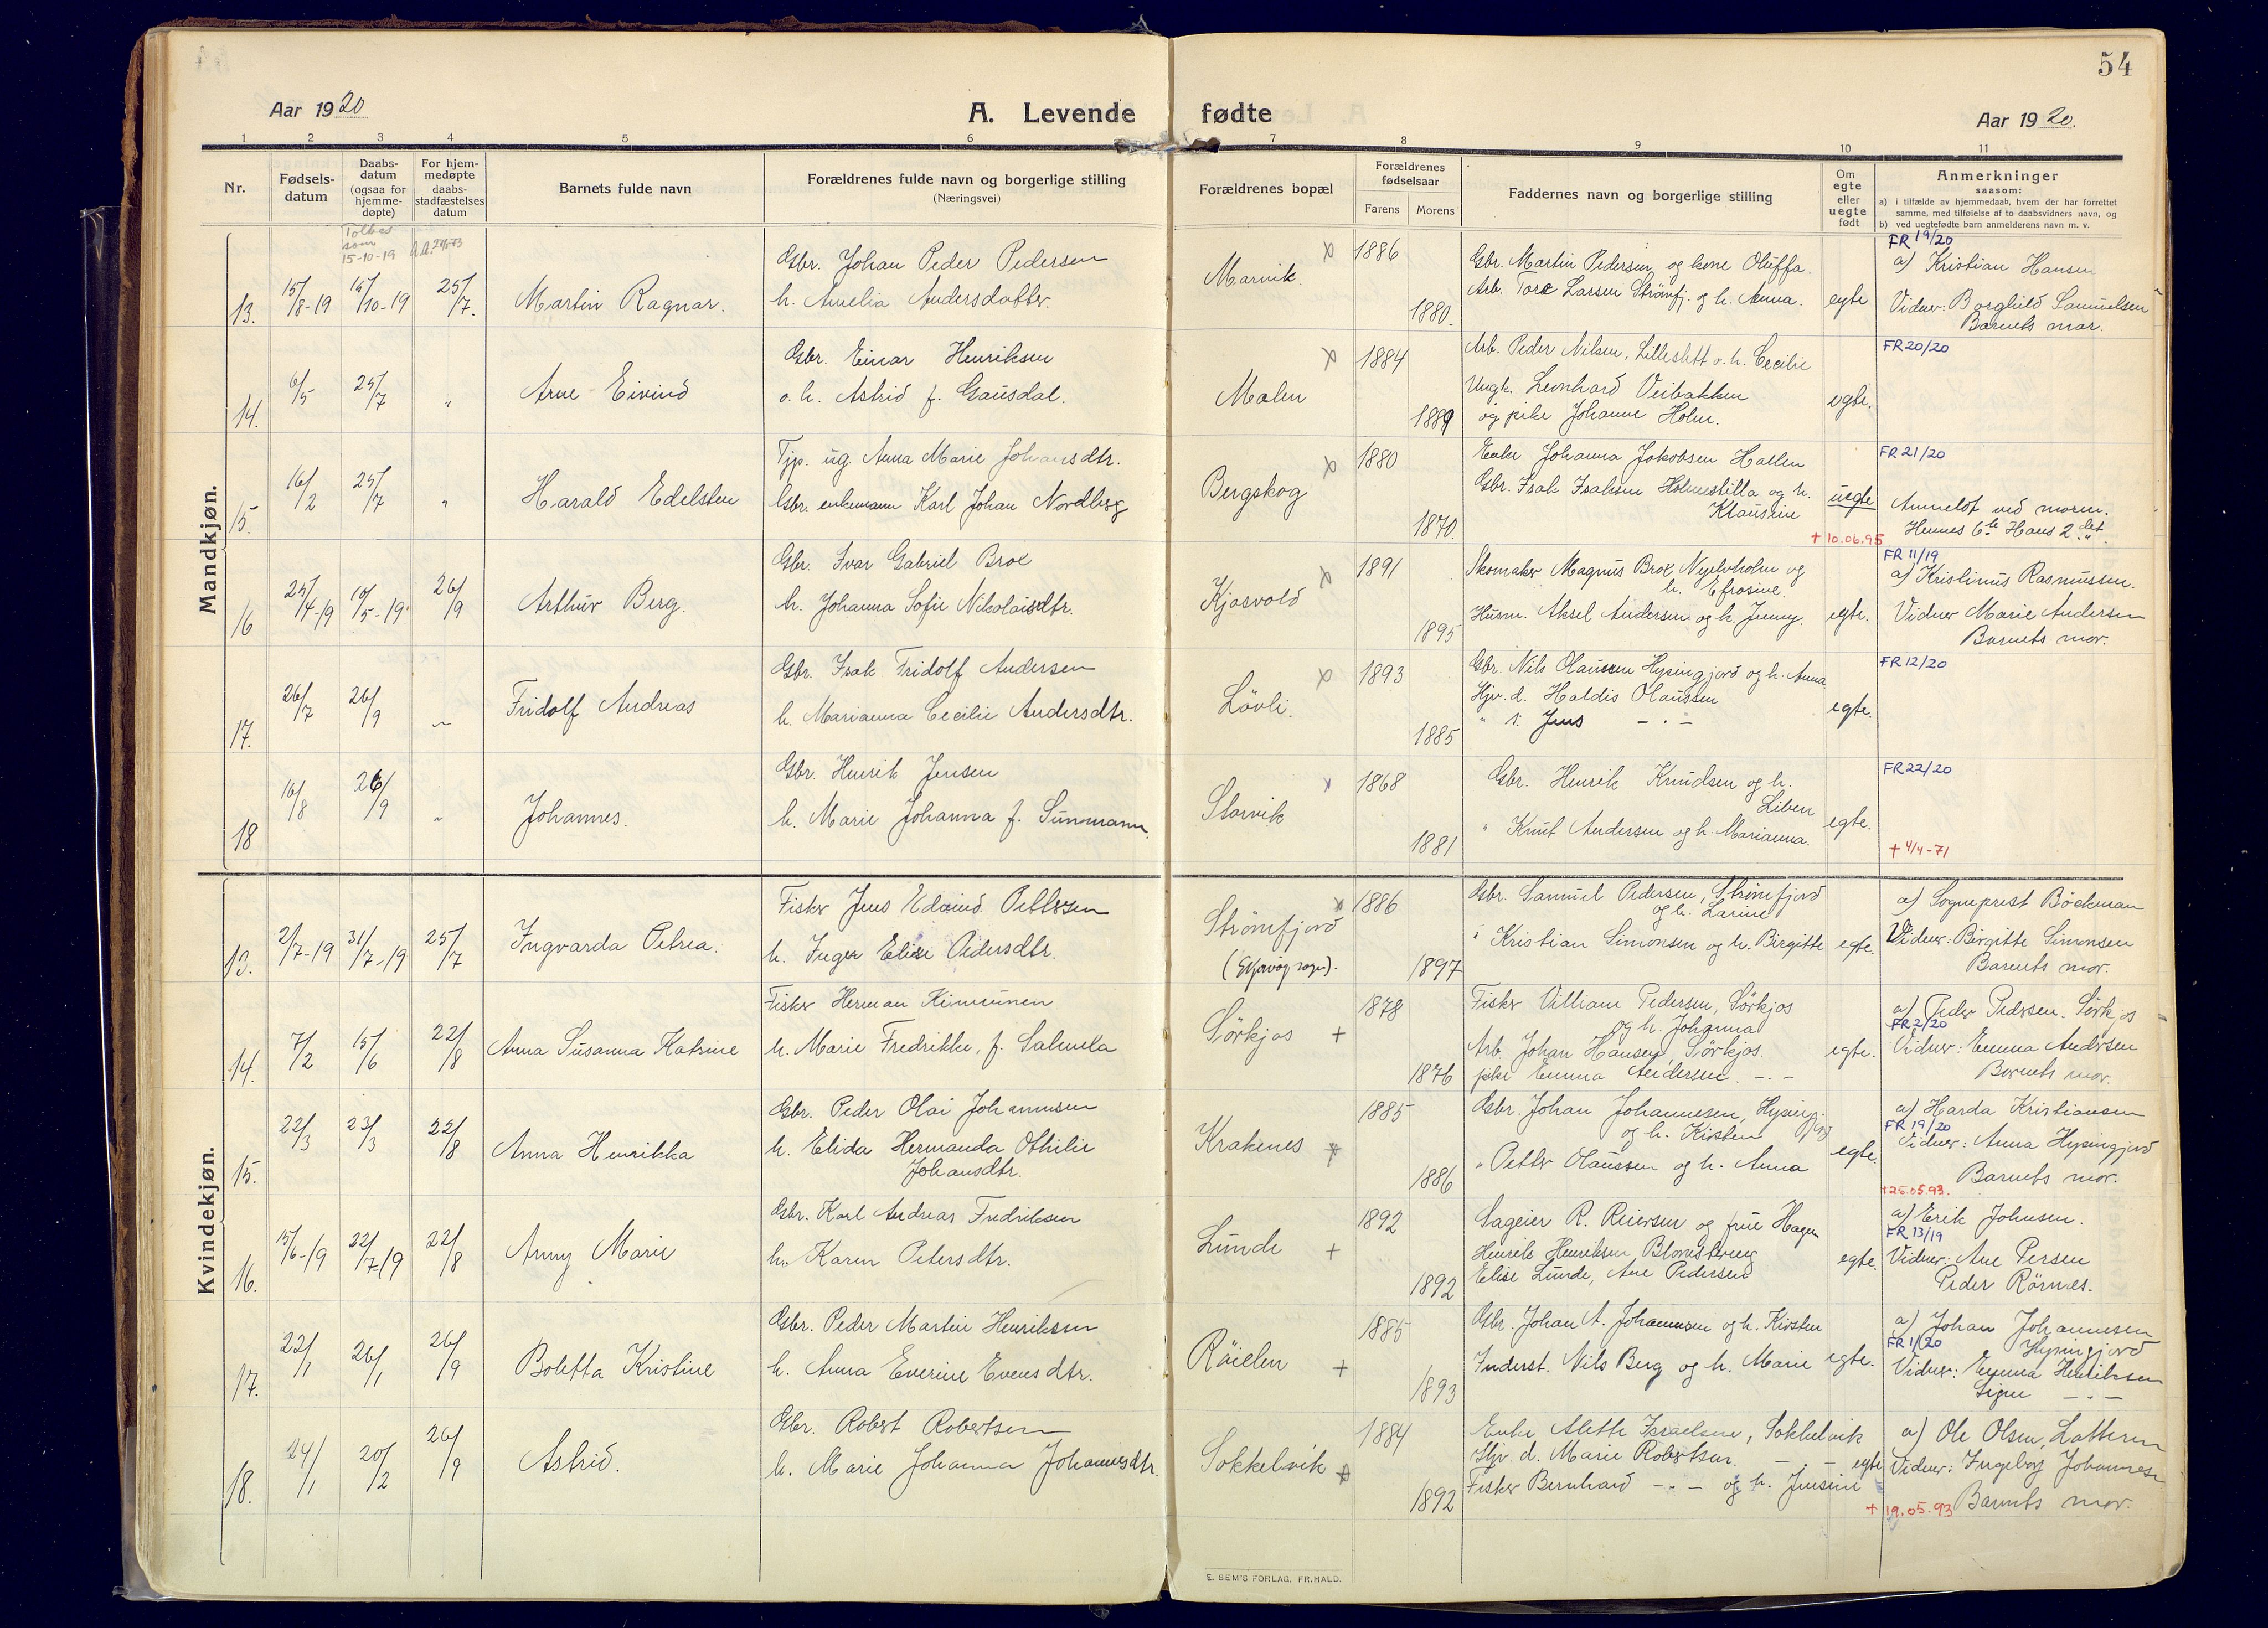 54
Aar 1920
A. Levende fødte
Aar 1920.
1 2 3 4 5 6 7 8 9 10 11
Nr.
Fødselsdatum
Daabsdatum (ogsaa for hjemmedøpte)
For hjemmedøpte daabsstadfæstelses datum
Barnets fulde navn
Forældrenes fulde navn og borgerlige stilling
(Næringsvei)
Forældrenes bopæl
Forældrenes fødselsaar
Farens Morens
Faddernes navn og borgerlige stilling
Om egte eller uegte født
Anmerkninger
saasom:
a) i tilfælde av hjemmedaab, hvem der har forrettet samme, med tilføielse af to daabsvidners navn, og
b) ved uegtefødte barn anmelderens navn m. v.
Mandkjøn.
Tolkes som 15-10-19
13. 15/8-19 15/10-19 25/7. Martin Ragnar.
Gbr. Johan Peder Pedersen
h. Amelia Andersdatter.
Marvik. x 1886 1880.
Gbr. Martin Pedersen og kone Oluffa.
Arb. Tore Larsen Strömfj. og h. Anna.
egte
FR 19/20
a) Kristian Hansen
Vidner: Borghild Samuelsen
Barnets mor.
14. 6/5 25/7 " Arne Eivind
Gbr. Einar Henriksen
o. h. Astrid f. Gausdal.
Malen x 1884 1889
Arb. Peder Nilsen, Lilleslett o. h. Cecilie
Ungk. Leonhard Veibakken
og pike Johanne Holm.
egte.
FR 20/20
15. 16/2 25/7 " Harald Edelsten
Tjp. ug. Anna Marie Johansdtr.
Gbr. enkemann Karl Johan Nordberg
Bergskog x 1880 1870.
Enke Johanna Jakobsen Hallen
Gbr. Isak Isaksen Holmestilla og h.
Klausine
uegte
+ 10.06.95
FR 21/20
Anmeldt ved moren.
Hennes 6te Hans 2det.
16 25/4-19 10/5-19. 26/9 Arthur Berg.
Gbr. Ivar Gabriel Brox
h. Johanna Sofie Nikolaisdtr.
Kjosvold x 1891 1895
Skomaker Magnus Brox Nyelvholm og
h. Efrosine.
Husm. Aksel Andersen og h. Jenny.
egte.
FR 11/19
a) Kristinus Rasmussen.
Vidner Marie Andersen
Barnets mor.
17. 26/7 26/9 " Fridolf Andreas
Gbr. Isak Fridolf Andersen
h. Marianna Cecilie Andersdtr.
Lövli. x 1893 1885
Gbr. Nils Olaussen Hysingjord og h. Anna.
Hjv. d. Haldis Olaussen
" s. Jens - . -
egte.
FR 12/20
18 16/8 26/9 " Johannes.
Gbr. Henrik Jensen
h. Marie Johanna f. Sunmann.
Storvik x 1868 1881
Gbr. Henrik Knudsen og h.
Liben
" Knut Andersen og h. Marianna.
egte.
FR 22/20
+ 4/4-71
Kvindekjøn.
13. 2/7-19 31/7-19 25/7 Ingvarda Petrea.
Fisker Jens Edvind Pettersen
h. Inger Elise Pedersdtr.
Strömfjord x 1886 1897
Gbr. Samuel Pedersen, Strömfjord
og h. Larine
" Kristian Simonsen og h. Birgitte
egte.
a) Sogneprest Böckman
Vidner: Birgitte Simonsen
Barnets mor.
14. 7/2 15/6 22/8 Anna Susanna Katrine
Fisker Herman Kimunen
h. Marie Fredrikke, f. Salmela
Sörkjos + 1878 1876
Fisker Villiam Pedersen, Sörkjos
og h. Johanna
Arb. Johan Hansen, Sörkjos.
pike Emma Andersen. - . -
egte.
a) Peder Pedersen. Sörkjos
FR 2/20
Vidner: Emma Andersen
Barnets mor.
15. 22/3 23/3 22/8 Anna Henrikka
Gbr. Peder Olai Johannesen
h. Elida Hermanda Othilie
Johansdtr.
Krakenes + 1885 1886
Gbr. Johan Johannesen, Hysingjord
og h. Kirsten
" Petter Olaussen og h. Anna
egte.
a) Harda Kristiansen
FR 19/20
Vidner: Anna Hysingjord
Barnets mor.
+25.05.93.
16. 15/6-19 22/7-19 22/8 Anny Marie
Gbr. Karl Andreas Fredriksen
h. Karen Petersdtr.
Lunde + 1892 1892
Sageier R. Reiersen og frue Hagen
Henrik Henriksen Blomstereng
Elise Lunde, Ane Pedersen
egte.
a) Erik Johnsen.
FR 13/19
Vidner: Ane Persen
Peder Rörnes.
17. 22/1 26/1 26/9 Boletta Kristine
Gbr. Peder Martin Henriksen
h. Anna Everine Evensdtr.
Röielen + 1885 1893
Gbr. Johan A. Johannesen og h. Kirsten
Inderst. Nils Berg og h. Marie
egte.
a) Johan Johannesen
FR 1/20 Hysingjord
Vidner: Emma Henriksen
Signe - . -
18. 24/1 20/2 26/9 Astrid.
Gbr. Robert Robertsen
h. Marie Johanna Johannesdtr.
Sokkelvik + 1884 1892
Enke Alette Israelsen, Sokkelvik
Hjv. d. Marie Robertsen. - . -
Fisker Bernhard - . - og h. Jensine
egte
a) Ole Olsen, Latteren
Vidner: Ingeborg Johannesen
+ 19.05.93 Barnets mor.
E. SEM'S FORLAG, FR.HALD.